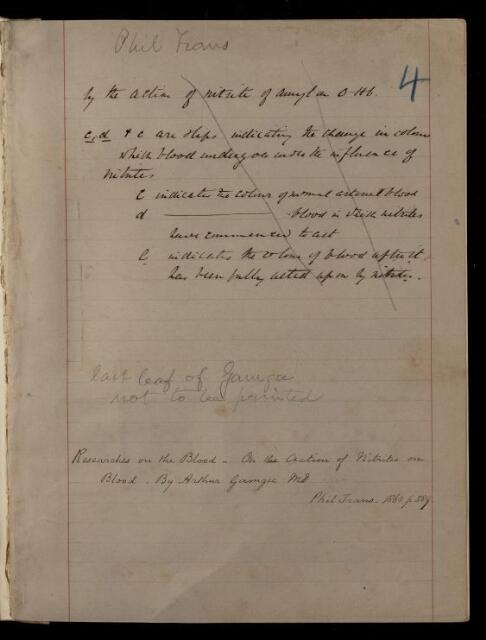 Phil Trans
4
by the action of nitrite of amyl on O-Hb.
c, d & e are steps indicating the change in colour
which blood undergoes under the influence of
nitrites
C indicates the colour of normal arterial blood
d ———— blood in which nitrites
have commenced to act
e. indicates the colour of blood after it
has been fully acted upon by nitrites.
last leaf of Gamgee
not to be printed
Researches on the Blood - On the Action of Nitrites on
Blood. By Arthur Gamgee MD
Phil Trans. 1868 p. 589